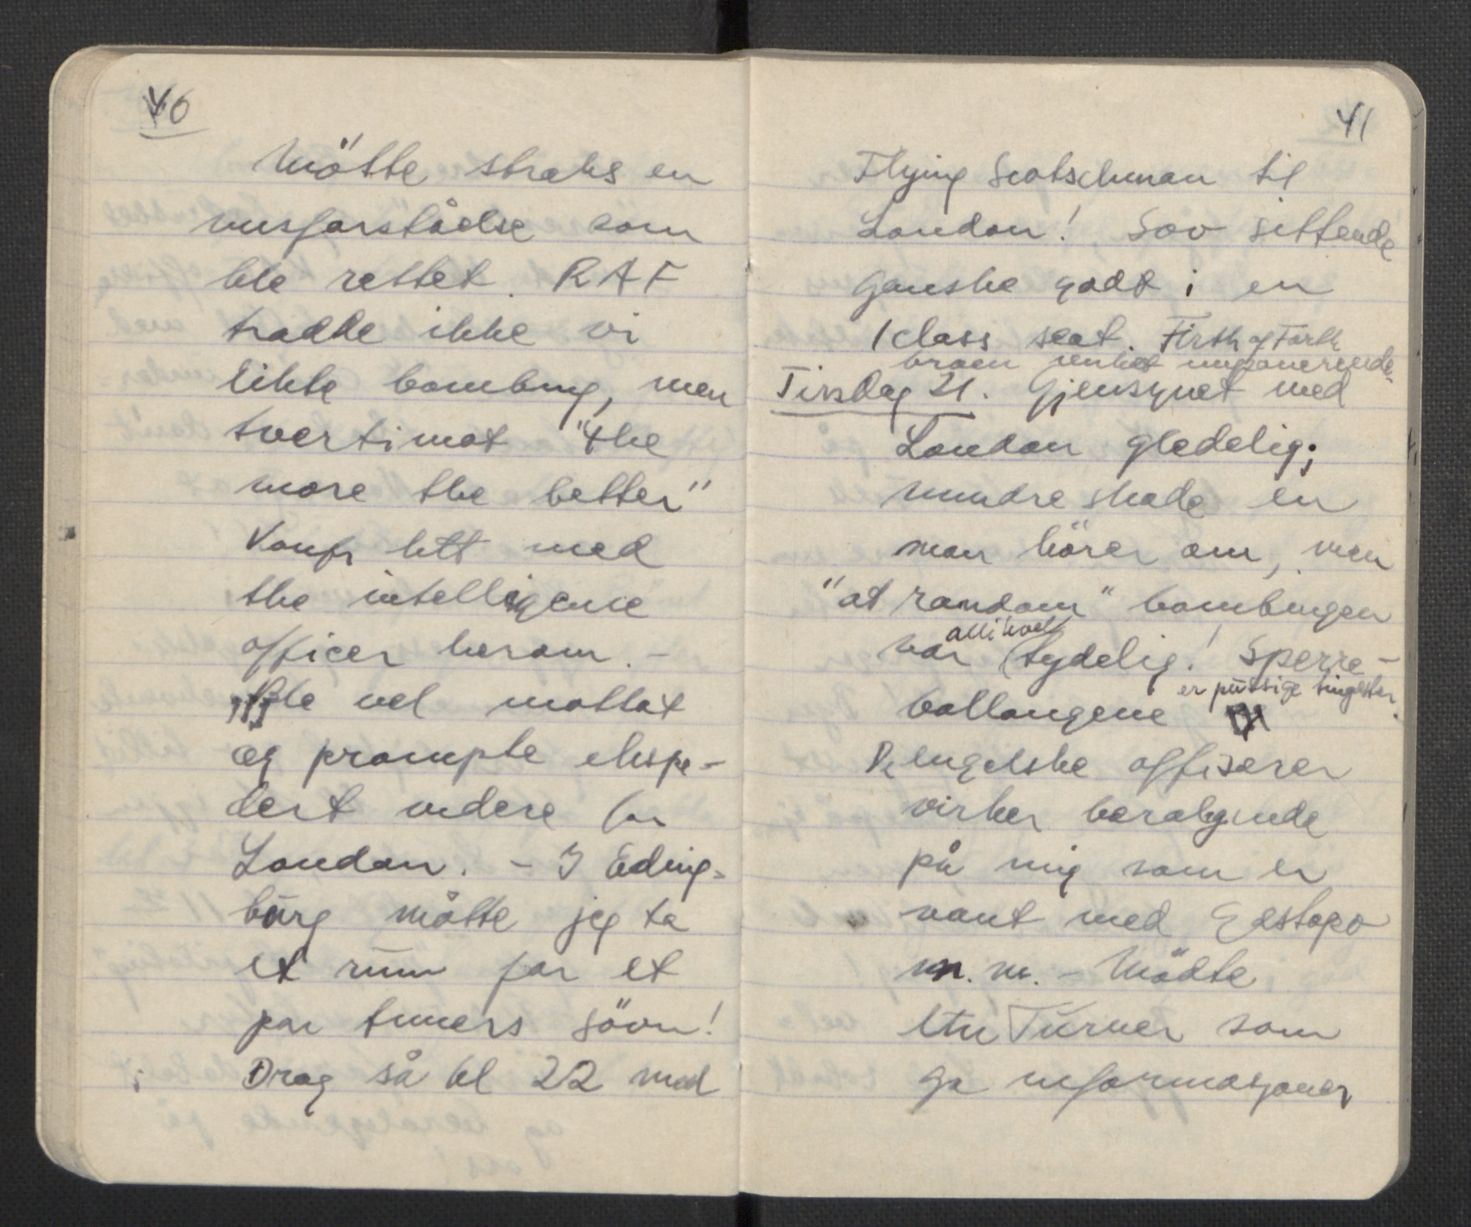 40
Mötte straks en
misforståelse som
ble rettet. RAF
trodde ikke vi
likte bombing, men
tvertimot "the
more the better"
Konfr litt med
the intelligence
officer herom. –
Ble vel mottat
og prompte ekspe-
dert videre for
London. – I Eding-
burg måtte jeg ta
et rum for et
par timers sövn!
Drog så kl 22 med
41
Flying Scotschman til
London! Sov sittende
ganske godt i en
1 class seat. Firth of Forth
broen virket imponerende.
Tirsdag 21. Gjensynet med
London gledelig;
mindre skade en
man hörer om, men
"at random" bombingen
var allikvel tydelig! Sperre-
ballongene er pussige tingester.
De engelske offiserer
virker beroligende
på mig som er
vant med Gestapo
m.m. – Mödte
ltn Turner som
ga informasjoner